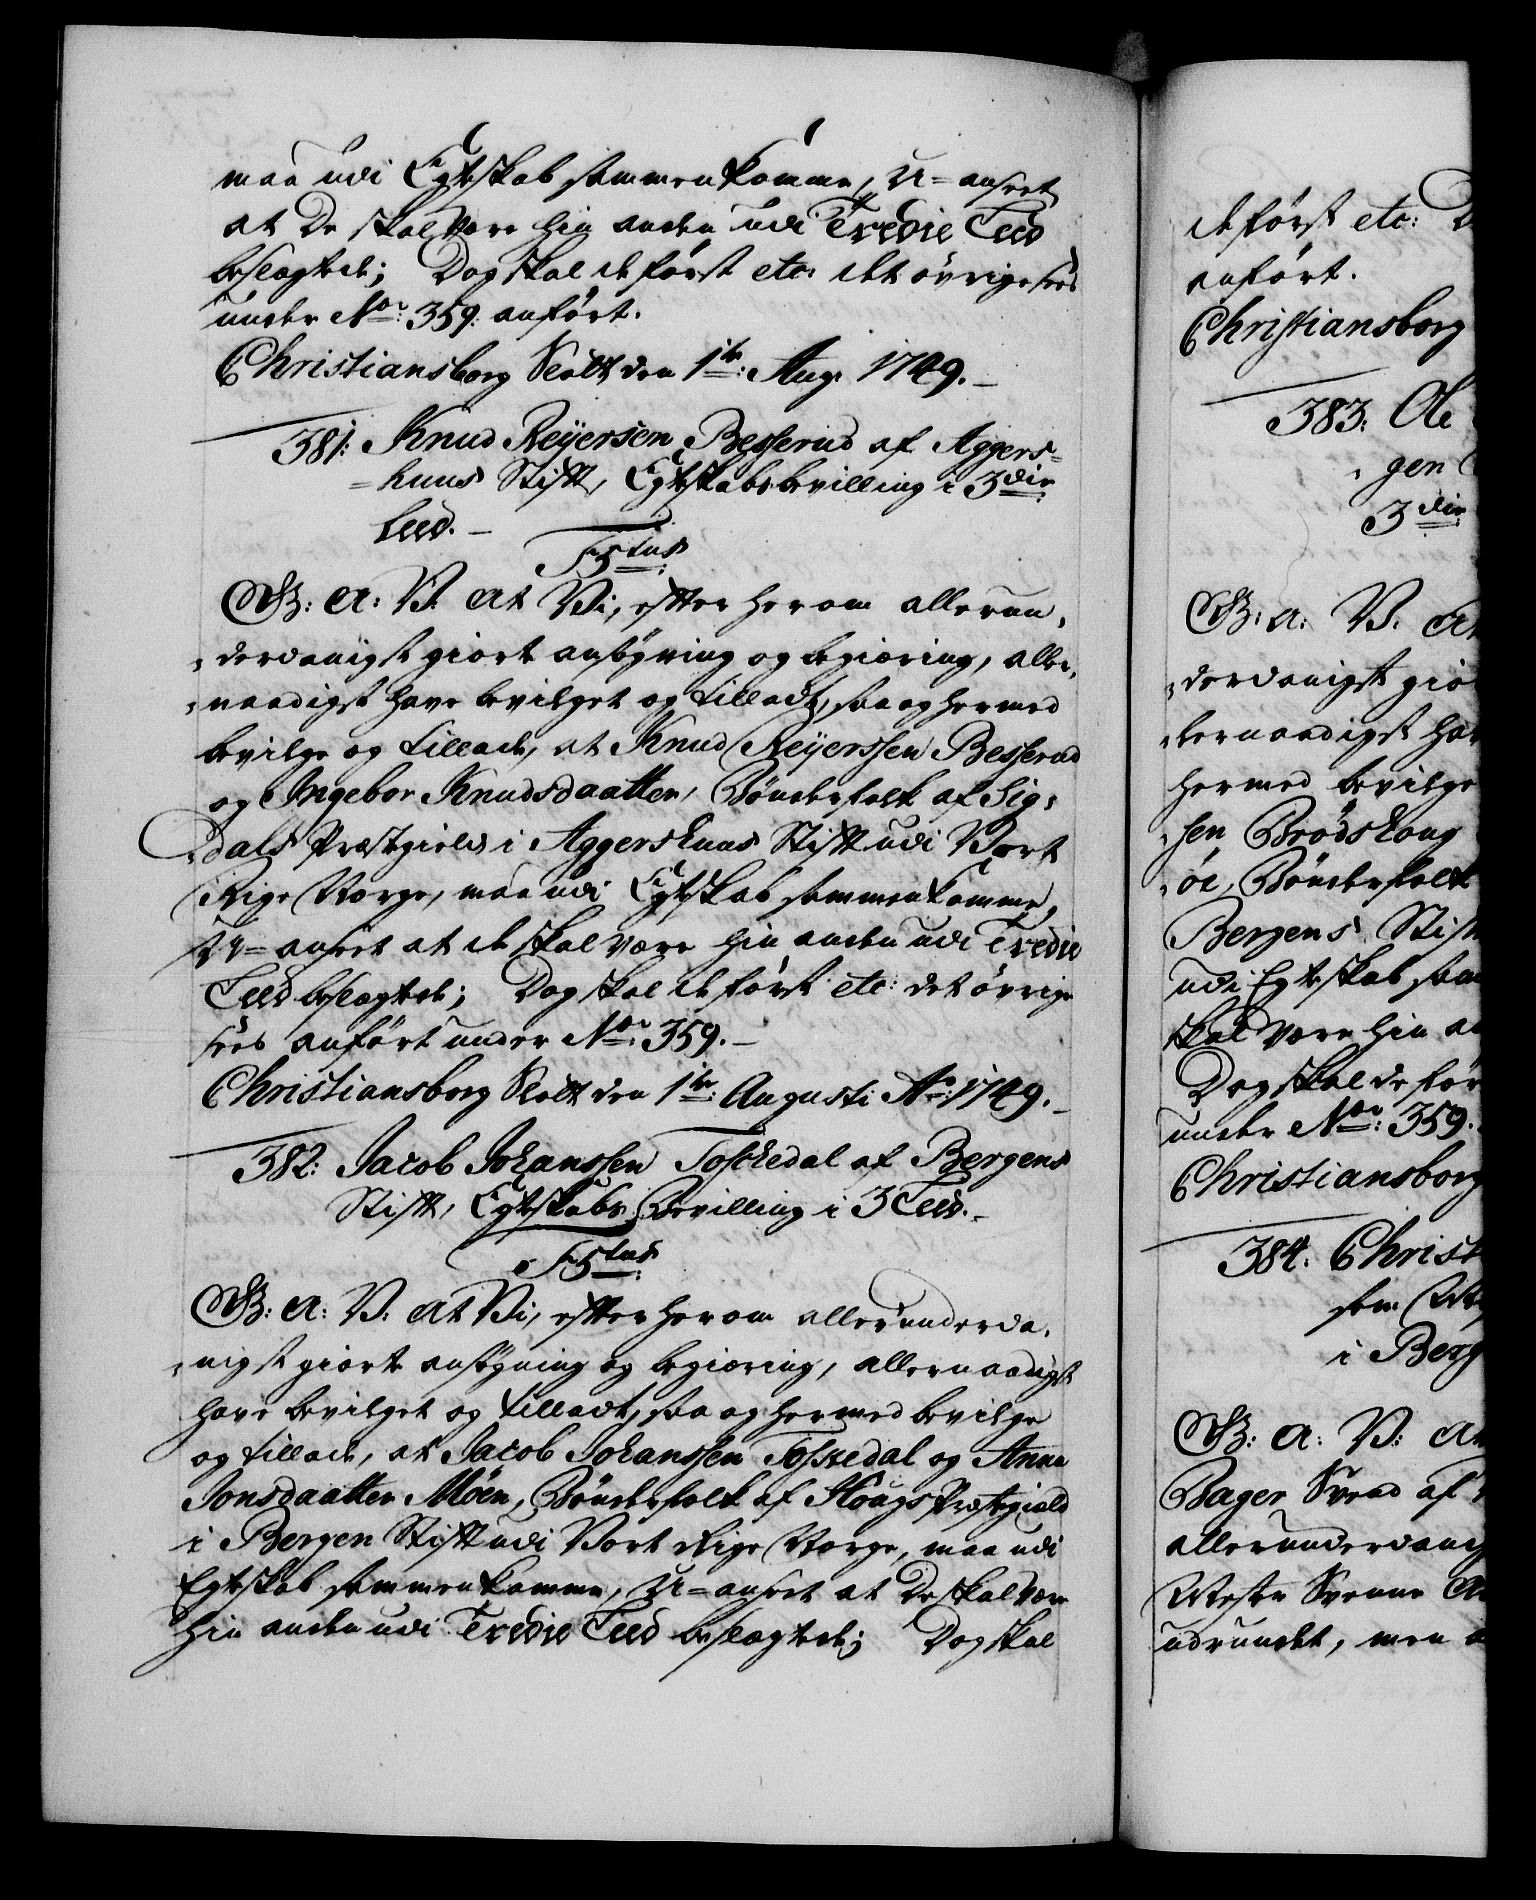 maa udi Egteskab sammenkomme, U-anseet
at De skal være hin anden udi Tredie Leed
beslægtede; Dog skal de først etc: det øvrige sees
under No: 359. anført.
Christiansborg Slott den 1te: Aug: 1749.
381: Knud Reyersen Besserud af Aggers-
-huus Stift, Egteskabs bevilling i 3die
Leed.
F5tus
G: A: V: At Vi, efter herom allerun-
-derdanigst giort ansøgning og begiæring, aller-
-naadigst have bevilget og tilladt, saa og hermed
bevilge og tillade, at Knud Reyerssen Besserud
og Ingebor Knudsdaatter, Bønderfolk af Sig-
-dals Præstegield i Aggershuus Stift udi Vort
Rige Norge, maa udi Egteskab sammenkomme,
U-anseet at de skal være hin anden udi Tredie
Leed beslægtede; Dog skal de først etc: det øvrige
sees anført under No: 359.
Christiansborg Slott den 1te: Augusti Ao: 1749.
382: Jacob Johanssen Toschedal af Bergens
Stift, Egteskabs Bevilling i 3 Leed.
F5tus
G: A: V: At Vi, efter herom allerunderda-
-nigst giorte ansøgning og begiæring, allernaadigst
have bevilget og tilladt, saa og hermed bevilge
og tillade, at Jacob Johanssen Toskedal og Anna
Jonsdaatter Møen, Bønderfolk af Hougs Præstegield
i Bergen Stift udi Vort Rige Norge, maa udi
Egteskab sammenkomme, U-anseet at De skal være
hin anden udi Tredie Leed beslægtede; Dog skal
de først etc: D
anført.
Christiansborg
383: Ole
gen
3die
G: A: V: At
-derdanigst gio
-lernaadigst ha
hermed bevilge
-sen Brødskoug
-øe, Bønderfolk
Bergens Stift
udi Egteskab sam
skal være hin an
Dog skal de før
under No: 359.
Christiansborg
384: Christ
sen
i Berg
G: A: V: At
Bager Svend af
allerunderdanig
Mester Svenne
udrundet, men